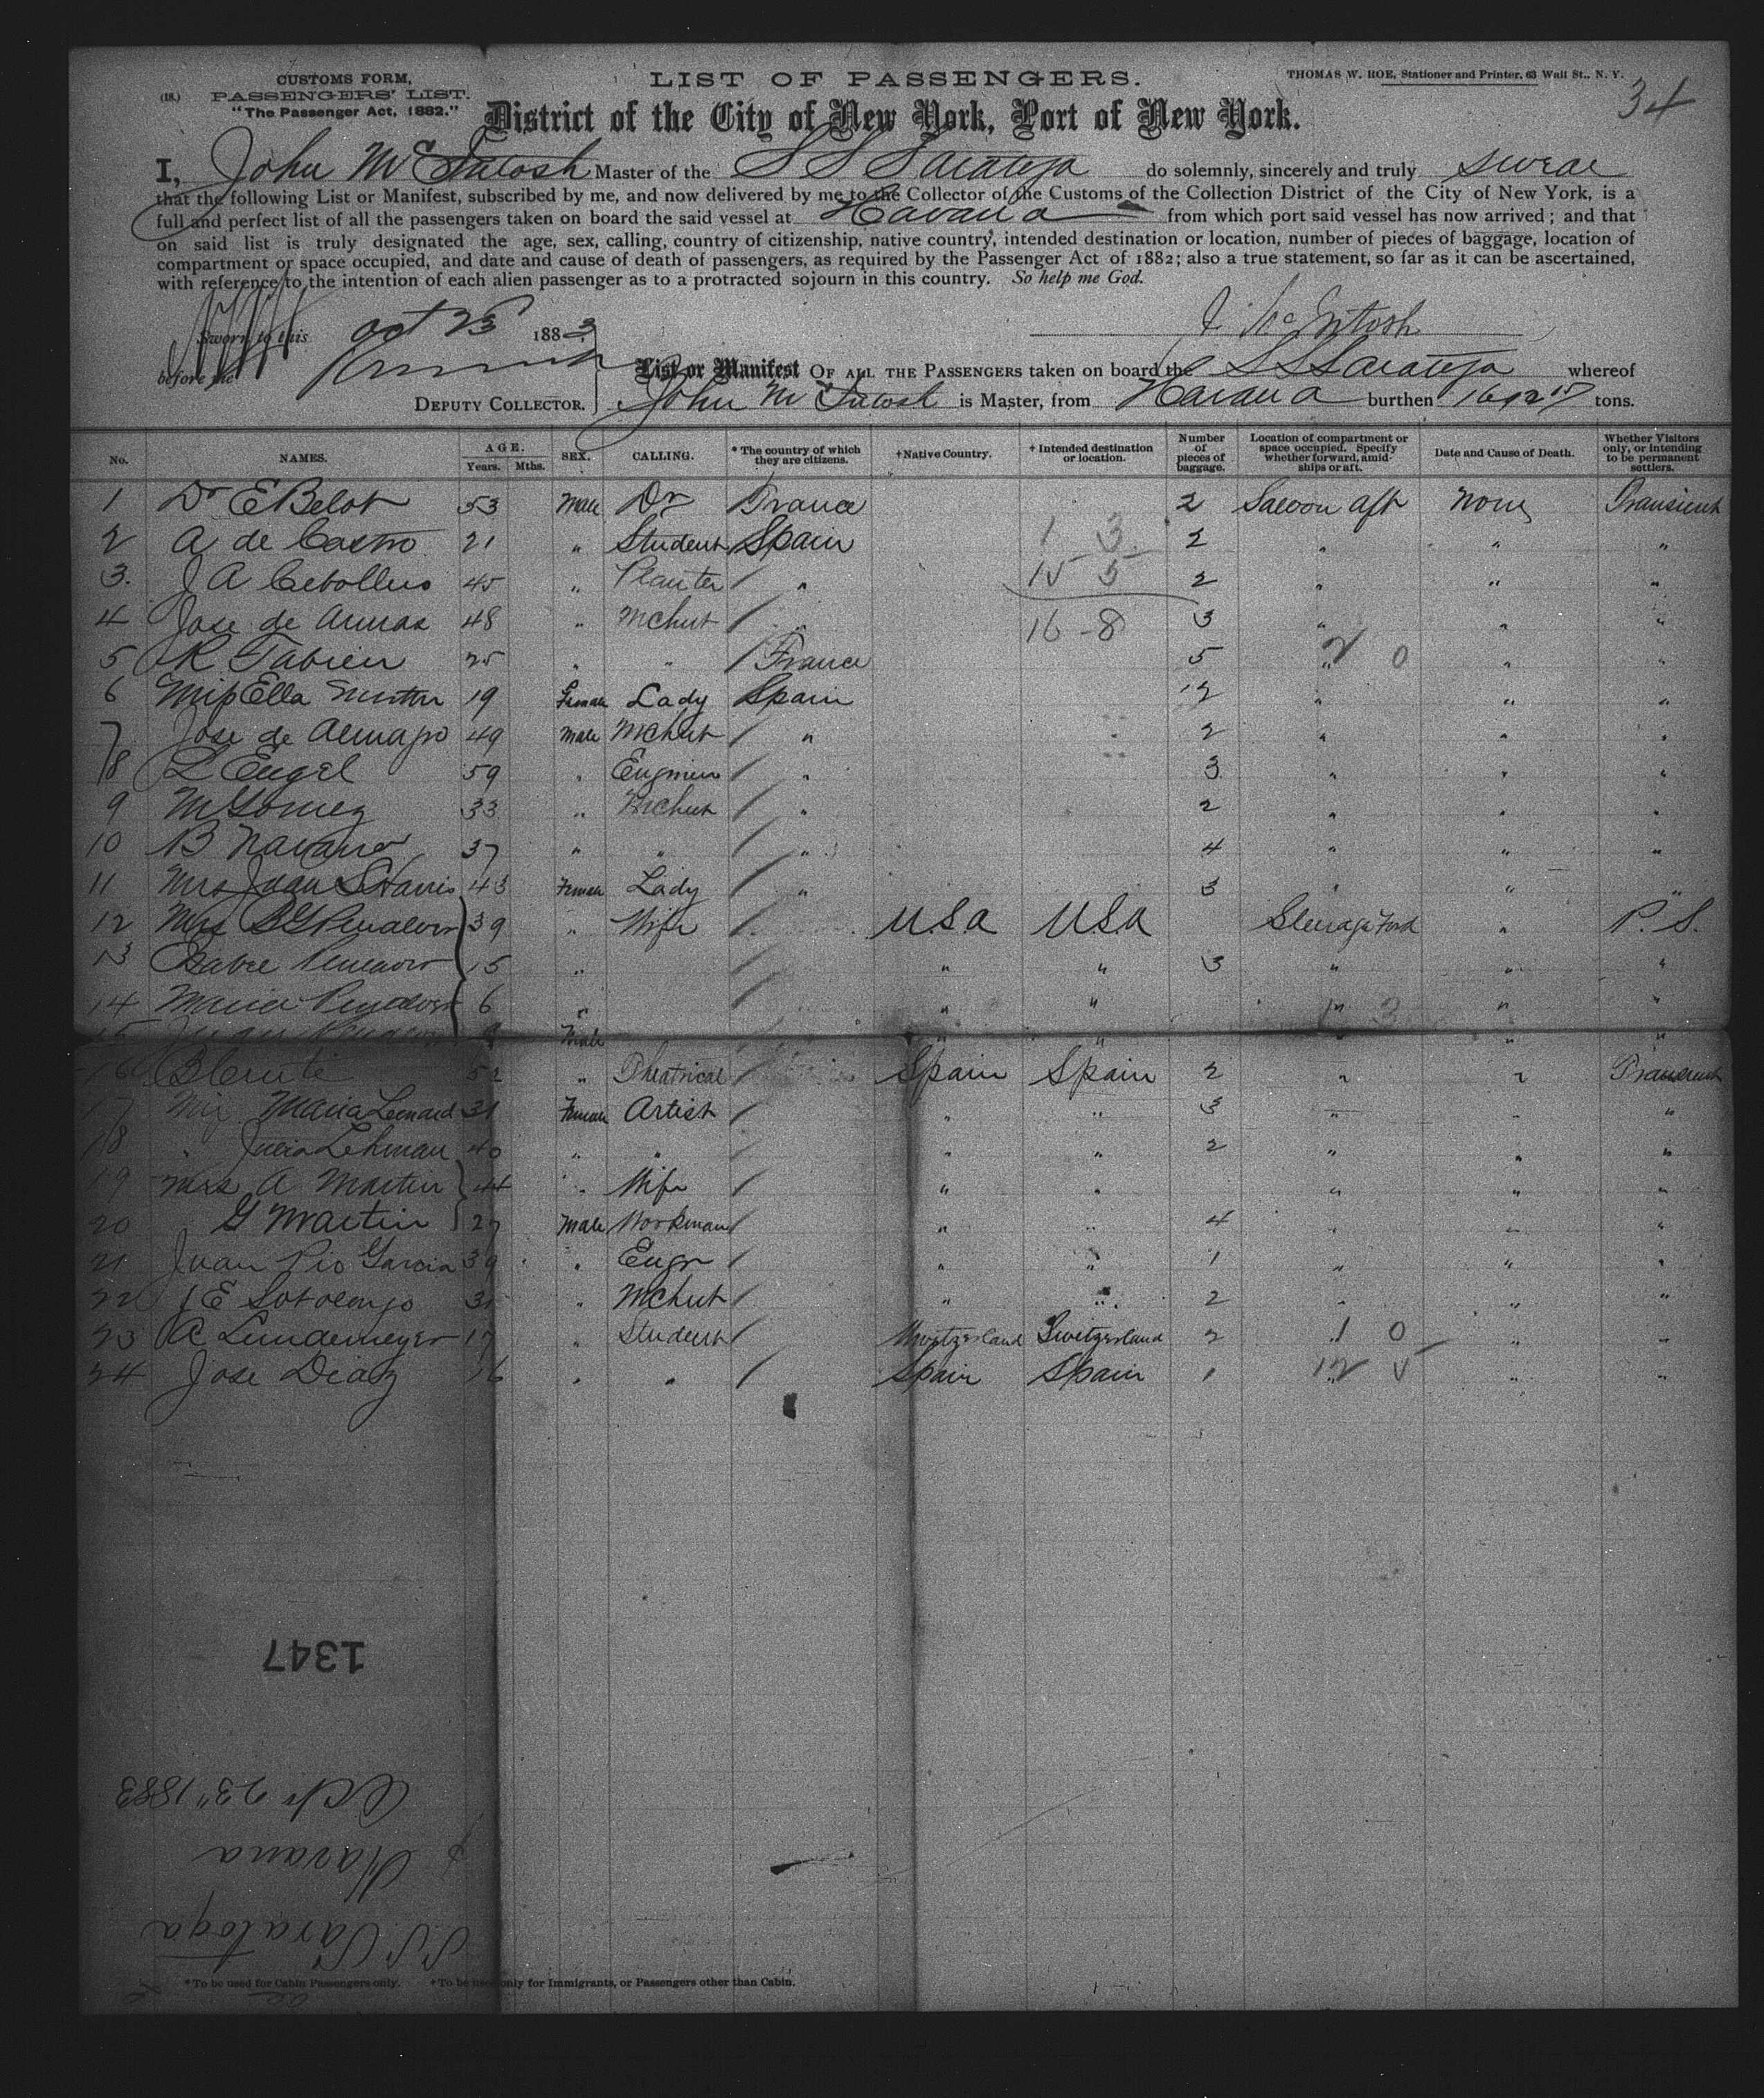 CUSTOMS FORM,
(18.) PASSENGERS' LIST.
"The Passenger Act, 1882."
LIST OF PASSENGERS.
THOMAS W. ROE, Stationer and Printer, 63 Wall St., N. Y.
34
District of the City of New York, Port of New York.
I, John McIntosh Master of the S S Saratoga do solemnly, sincerely and truly swear
that the following List or Manifest, subscribed by me, and now delivered by me to the Collector of the Customs of the Collection District of the City of New York, is a
full and perfect list of all the passengers taken on board the said vessel at Havana from which port said vessel has now arrived; and that
on said list is truly designated the age, sex, calling, country of citizenship, native country, intended destination or location, number of pieces of baggage, location of
compartment or space occupied, and date and cause of death of passengers, as required by the Passenger Act of 1882; also a true statement, so far as it can be ascertained,
with reference to the intention of each alien passenger as to a protracted sojourn in this country. So help me God.
Sworn to this Oct 23 1883
J. McIntosh
before me
List or Manifest OF ALL THE PASSENGERS taken on board the S S Saratoga whereof
DEPUTY COLLECTOR. John McIntosh is Master, from Havana burthen tons.
No. NAMES. AGE. Years. Mths. SEX. CALLING. * The country of which they are citizens. †Native Country. † Intended destination or location. Number of pieces of baggage. Location of compartment or space occupied. Specify whether forward, amidships or aft. Date and Cause of Death. Whether Visitors only, or intending to be permanent settlers.
1 Dr E Belot 53 Male Dr France 2 Saloon aft None Transient
2 A de Castro 21 " Student Spain 1 3 2 " " "
3. J A Cebollus 45 " Planter / " 15 5 2 " " "
4 Jose de Armas 48 " Mchnt / " 16 - 8 3 " " "
5 R Fabien 25 " " / France 5 " 2 0 " "
6 Miss Ella 19 Female Lady Spain 2 " " "
7 Jose de 49 Male Mchnt / " 2 " " "
8 L Engel 59 " / " 3 " " "
9 M Gomez 33 " Mchnt / " 2 " " "
10 B Navarro 37 " " / " 4 " " "
11 Mrs Juan S Harris 43 Female Lady / " 3 " " "
12 Mrs 39 " Wife / U.S.A U.S.A Steerage Ford " P. S.
13 15 " / " " 3 " " "
14 Maria 6 " / " " " " "
15 Male " " " "
16 52 " Theatrical / Spain Spain 2 " " Transient
17 Miss Maria Leonard 31 Female Artist / " " 3 " " "
18 " Julia Lehman 40 " " / " " 2 " " "
19 Mrs A Martin 44 " Wife / " " " " "
20 G Martin 27 Male Workman / " " 4 " " "
21 Juan Pio Garcia 39 " Engr / " " 1 " " "
22 J E Sotolongo 31 " Mchnt / " " 2 " " "
23 A Lundemeyer 17 " Student / Switzerland Switzerland 2 " 1 0 " "
24 Jose Diaz 16 " " / Spain Spain 1 12 5 " "
1347
Oct 23" 1883
Havana
S.S. Saratoga
* To be used for Cabin Passengers only. † To be used only for Immigrants, or Passengers other than Cabin.